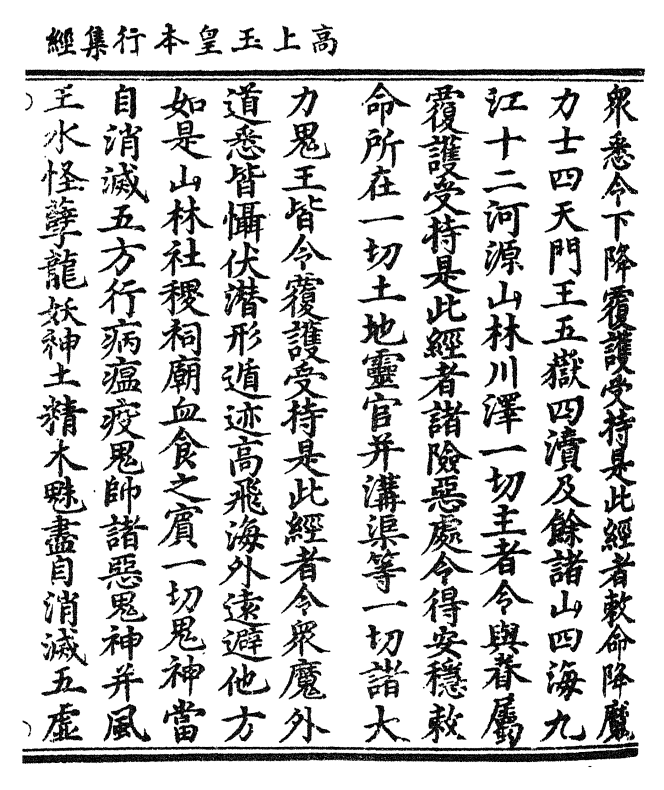 高上玉皇本行集經
衆悉令下降覆護受持是此經者敕命降魔
力士四天門王五嶽四瀆及餘諸山四海九
江十二河源山林川澤一切主者令與眷屬
覆護受持是此經者諸險惡處令得安穩敕
命所在一切土地靈官并溝渠等一切諸大
力鬼王皆令覆護受持是此經者令衆魔外
道悉皆懾伏潛形遁迹高飛海外遠避他方
如是山林社稷祠廟血食之賓一切鬼神當
自消滅五方行病瘟疫鬼帥諸惡鬼神并風
王水怪孽龍妖神土精木魅盡自消滅五虛